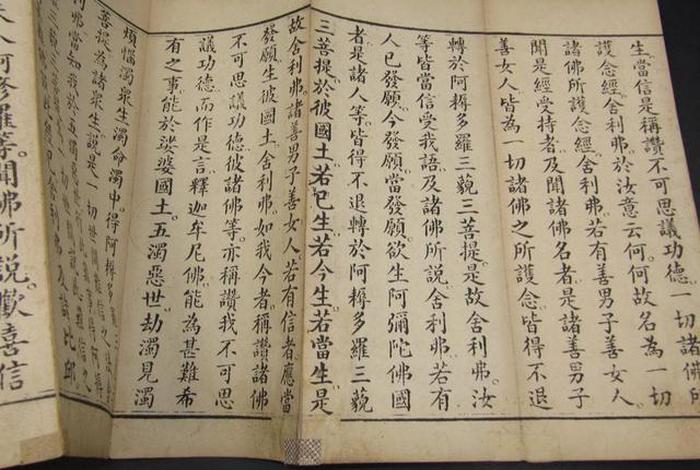 生。當信是稱讚不可思議功德。一切諸佛所
護念經。舍利弗。於汝意云何。何故名為一切
諸佛所護念經。舍利弗。若有善男子善女人。
聞是經受持者。及聞諸佛名者。是諸善男子
善女人。皆為一切諸佛之所護念。皆得不退
轉於阿耨多羅三藐三菩提。是故舍利弗。汝
等皆當信受我語。及諸佛所說。舍利弗。若有
人已發願。今發願。當發願。欲生阿彌陀佛國
者。是諸人等。皆得不退轉於阿耨多羅三藐
三菩提。於彼國土。若已生。若今生。若當生。是
故舍利弗。諸善男子善女人。若有信者。應當
發願生彼國土。舍利弗。如我今者。稱讚諸佛
不可思議功德。彼諸佛等。亦稱讚我不可思
議功德。而作是言。釋迦牟尼佛。能為甚難希
有之事。能於娑婆國土。五濁惡世。劫濁見濁
煩惱濁眾生濁命濁中。得阿耨多羅
菩提。為諸眾生。說是一切世間難信之
利弗當知。我於五濁惡世
人阿修羅等。聞佛所說。歡喜信